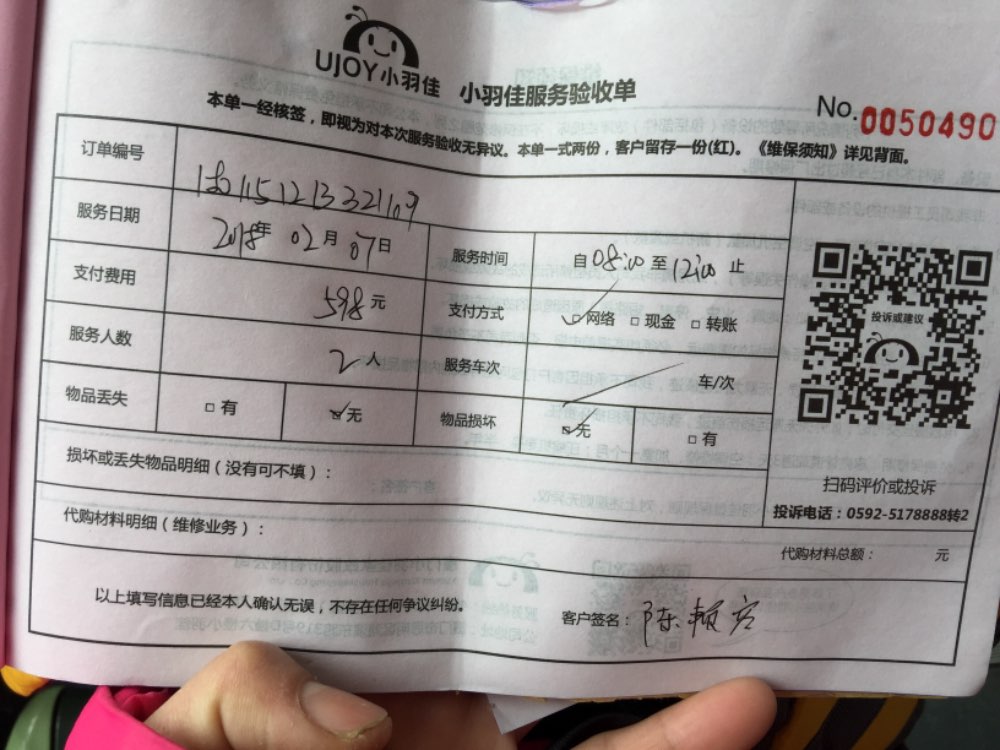 UJOY小羽佳 小羽佳服务验收单
No.0050490
本单一经核签，即视为对本次服务验收无异议。本单一式两份，客户留存一份(红)。《维保须知》详见背面。
订单编号
服务日期 2018年 02月 07日 服务时间 自08:00至12:00止
支付费用 598元 支付方式 网络 现金 转账
服务人数 2人 服务车次 车/次
物品丢失 有 无 物品损坏 无 有
投诉或建议
扫码评价或投诉
投诉电话：0592-5178888转2
损坏或丢失物品明细（没有可不填）：
代购材料明细（维修业务）：
代购材料总额： 元
以上填写信息已经本人确认无误，不存在任何争议纠纷。
客户签名：陈